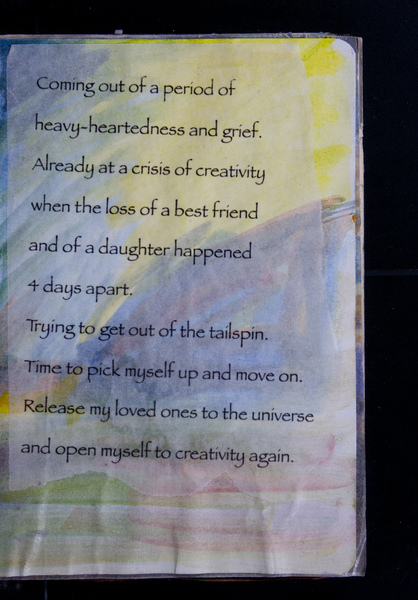 Coming out of a period of
heavy-heartedness and grief.
Already at a crisis of creativity
when the loss of a best friend
and of a daughter happened
4 days apart.
Trying to get out of the tailspin.
Time to pick myself up and move on.
Release my loved ones to the universe
and open myself to creativity again.